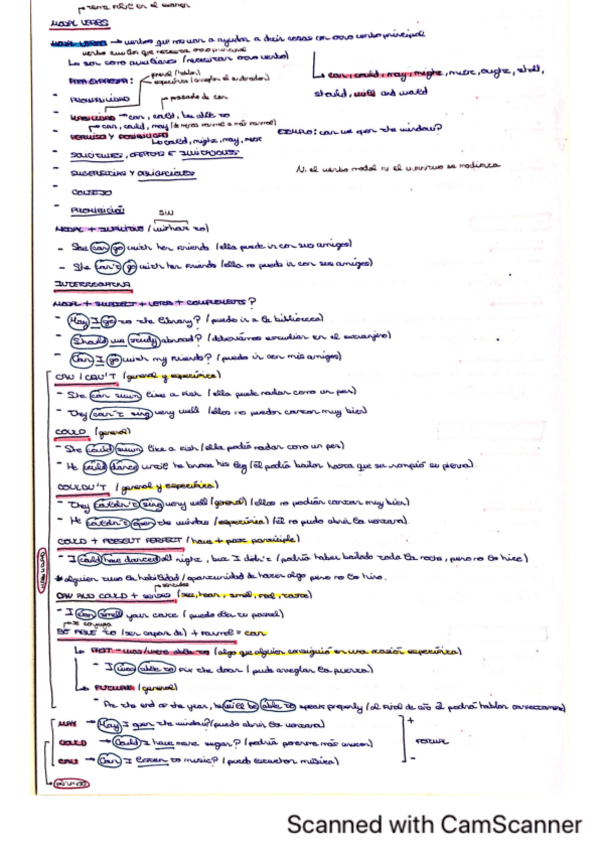 MODAL VERBS
MODAL VERBS → verbos que nos van a ayudar a decir cosas con otro verbo principal
can, could, may, might, must, ought, shall,
should, will and would
PARA EXPRESAR:
→ pasado de can
HABILIDAD → can, could, be able to
→ can, could, may
PERMISO Y POSIBILIDAD
↳ could, might, may, must
EJEMPLO: can we open the window?
- SOLICITUDES, OFERTAS E INVITACIONES
- SUGERENCIAS Y OBLIGACIONES
- CONSEJO
- PROHIBICIÓN
SIN
MODAL + INFINITIVO (without to)
- She can go with her friends (ella puede ir con sus amigos)
- She can't go with her friends (ella no puede ir con sus amigos)
INTERROGATIVA
MODAL + SUBJECT + VERB + COMPLEMENTS?
- May I go to the library? (puedo ir a la biblioteca)
- Should we study abroad? (deberíamos estudiar en el extranjero)
- Can I go with my friends? (puedo ir con mis amigos)
CAN / CAN'T (general y específica)
- She can swim like a fish (ella puede nadar como un pez)
- They can't sing very well (ellos no pueden cantar muy bien)
COULD (general)
- She could swim like a fish (ella podía nadar como un pez)
- He could dance until he broke his leg (él podía bailar hasta que se rompió su pierna)
COULDN'T (general y específica)
- They couldn't sing very well (general) (ellos no podían cantar muy bien)
- He couldn't open the window (específica) (él no pudo abrir la ventana)
COULD + PRESENT PERFECT (have + past participle)
- I could have danced all night, but I didn't (podría haber bailado toda la noche, pero no lo hice)
* alguien tuvo la habilidad / oportunidad de hacer algo pero no lo hizo.
CAN AND COULD + SENSES (see, hear, smell, feel, taste)
- I can smell your cake (puedo oler tu pastel)
BE ABLE TO (ser capaz de) + formal = can
↳ PAST - was/were able to (algo que alguien consiguió en una ocasión específica)
- I was able to fix the door (pude arreglar la puerta)
↳ FUTURE (general)
- At the end of the year, he will be able to speak properly (al final de año él podrá hablar correctamente)
MAY → May I open the window? (puedo abrir la ventana)
+
COULD → Could I have more sugar? (podría ponerme más azúcar)
FORMAL
CAN → Can I listen to music? (puedo escuchar música)
-
Scanned with CamScanner